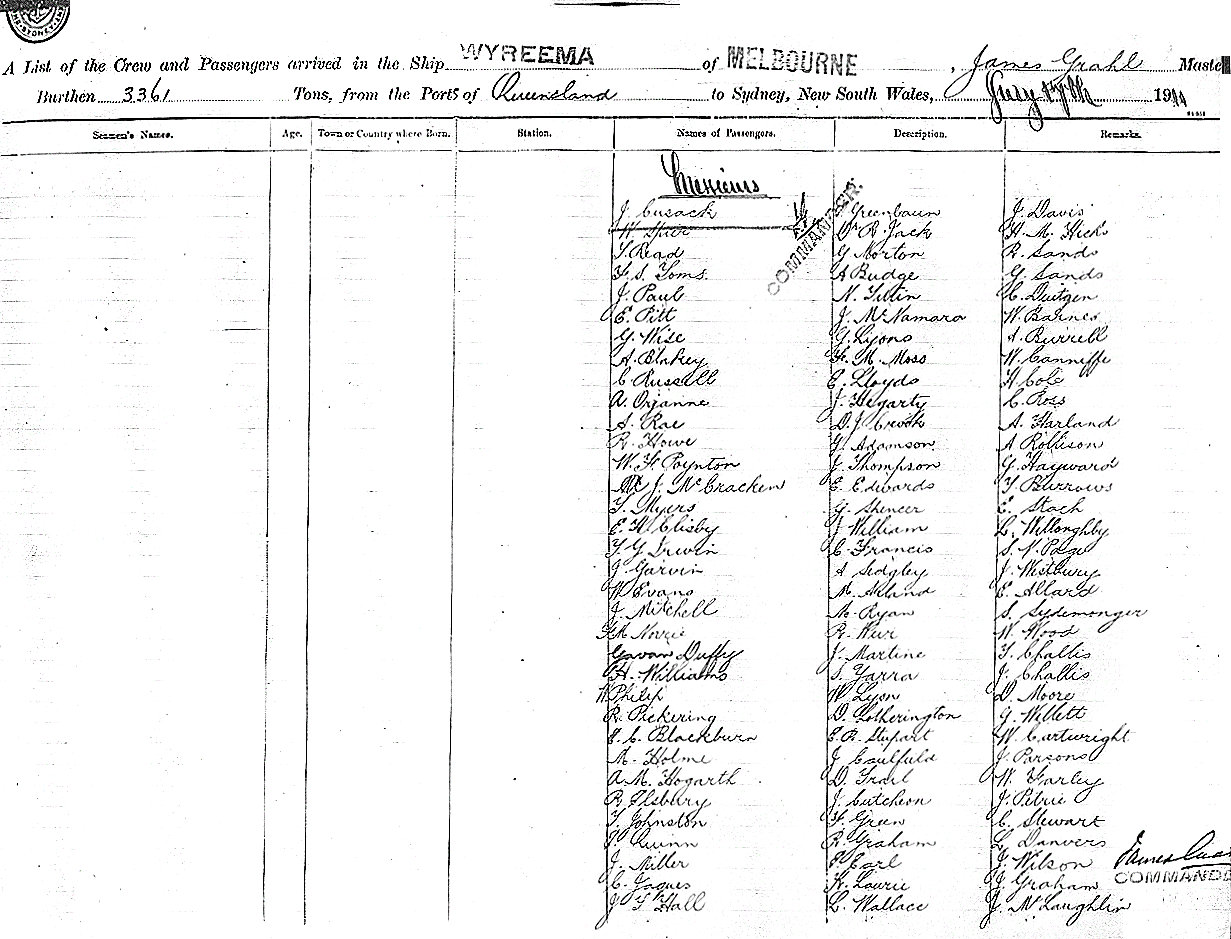 A List of the Crew and Passengers arrived in the Ship WYREEMA of MELBOURNE, James Grahl Maste
Burthen 3361 Tons, from the Ports of Queensland to Sydney, New South Wales, 19
Seamen's Names. Age. Town or Country where Born. Station. Names of Passengers. Description. Remarks.
Messieurs
COMMANDER.
J. Cusack Greenbaum J. Davis
W. Dr R Jack H. M. Hicks
T. Read G Norton R. Sands
F. S. Toms A Budge G. Sands
J. Paul N. Tittin C. Duitgen
E. Pitt J. McNamara W. Barnes
G. Wise G. Lyons A. Burrell
A. Blakey F. M. Moss W. Canniffe
C Russell E. Lloyds H Cole
A. Orjanne J. Hegarty C. Ross
A. Rae D. J. Crook A. Harland
R. Howe G. Adamson A Rollison
W. F. Poynton J. Thompson G. Hayward
J. McCracken E. Edwards T Burrows
T. Myers G. Spencer E. Stach
E. H. Clisby J William L. Willoughby
T. G Irwin C. Francis S. V. Page
J. Garvin A Sedgley J. Westbury
W Evans M. Akland E. Allard
J. Mitchell M. Ryan S. Sydemonger
Norrie R. Weir W. Wood
Gavan Duffy J. Martine T. Challis
H. Williams S. Yarra J. Challis
W Philip W Lyon D. Moore
R. Pickering D. Lotherington G. Willett
E. C. Blackburn E. R. Stupart W. Cartwright
A. Holme J Caulfield J. Parsons
A. M. Hogarth D. Trail W. Farley
R. Ilsbury J. Cutcheon J. Petrie
T. Johnston F. Green C. Stewart
Quinn R. Graham L. Danvers
J. Miller P. Earl J. Wilson James
C. Jaques K. Laurie J. Graham COMMANDE
J T Hall L. Wallace J. McLaughlin